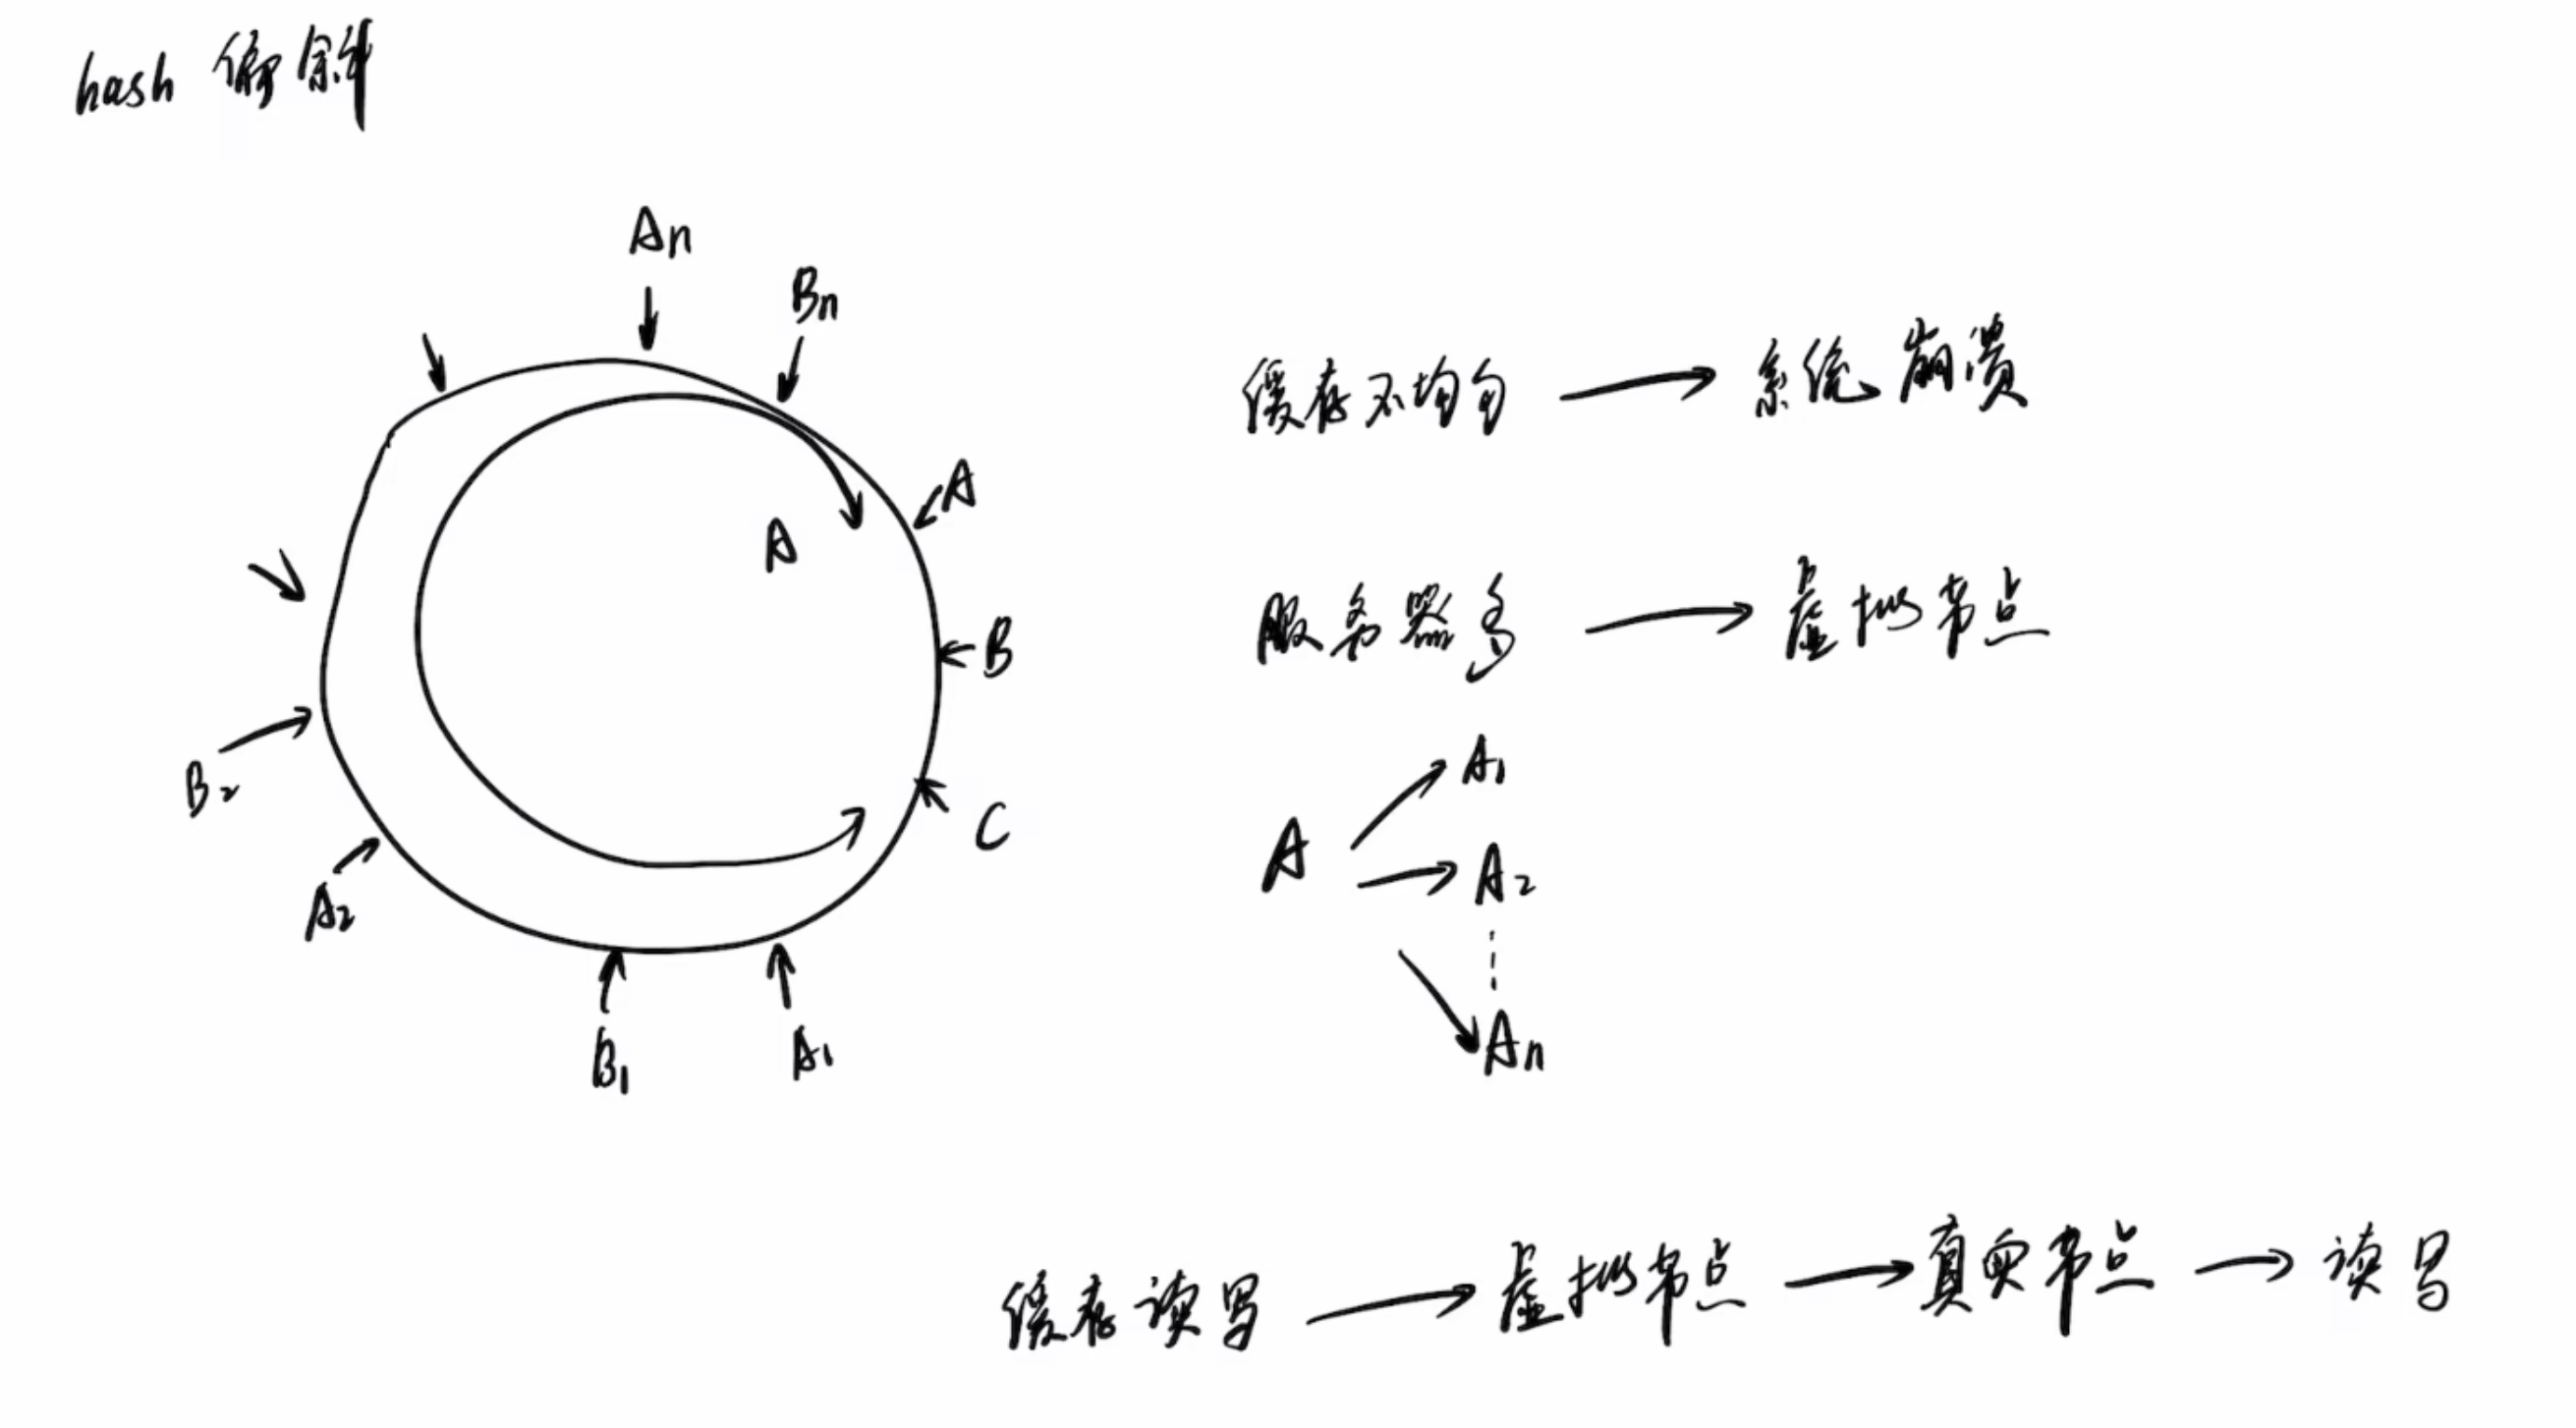 hash 偏斜
An
Bn
A
A
B
B2
C
A2
B1
A1
缓存不均匀 → 系统崩溃
服务器多 → 虚拟节点
A1
A → A2
An
缓存读写 → 虚拟节点 → 真实节点 → 读写